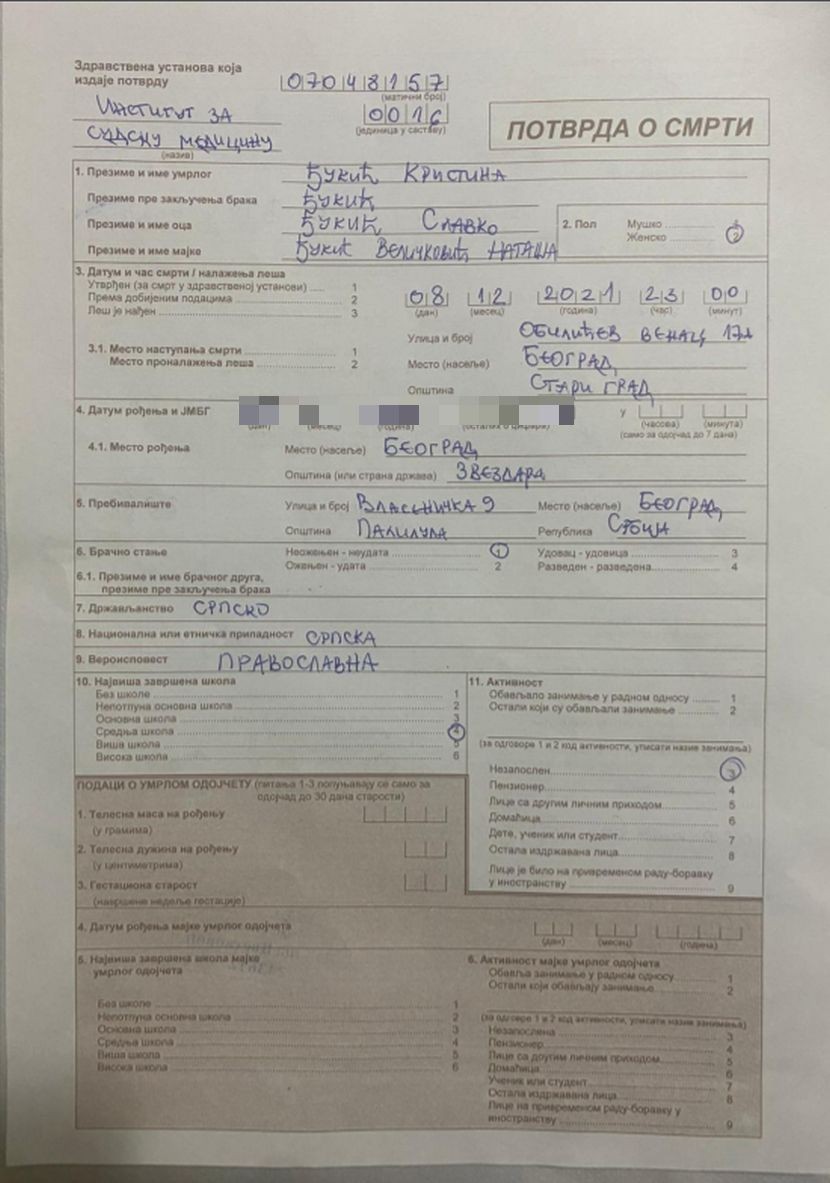 Здравствена установа која
издаје потврду
07048157
(матични број)
Институт за
0016
(јединица у саставу)
судску медицину
(назив)
ПОТВРДА О СМРТИ
1. Презиме и име умрлог Ђукић Кристина
Презиме пре закључења брака Ђукић
Презиме и име оца Ђукић Славко
2. Пол Мушко 1
Женско 2
Презиме и име мајке Ђукић Величковић Наташа
3. Датум и час смрти / налажења леша
Утврђен (за смрт у здравственој установи) 1
Према добијеним подацима 2
Леш је нађен 3
08 12 2021 23 00
(дан) (месец) (година) (час) (минут)
Улица и број Обилићев венац 17А
3.1. Место наступања смрти 1
Место проналажења леша 2
Место (насеље) Београд
Општина Стари Град
4. Датум рођења и ЈМБГ
у
(часова) (минута)
(само за одојчад до 7 дана)
4.1. Место рођења Место (насеље) Београд
Општина (или страна држава) Звездара
5. Пребивалиште Улица и број Власничка 9 Место (насеље) Београд
Општина Палилула Република Србија
6. Брачно стање Неожењен - неудата 1 Удовац - удовица 3
Ожењен - удата 2 Разведен - разведена 4
6.1. Презиме и име брачног друга,
презиме пре закључења брака
7. Држављанство српско
8. Национална или етничка припадност српска
9. Вероисповест православна
10. Највиша завршена школа
Без школе 1
Непотпуна основна школа 2
Основна школа 3
Средња школа 4
Виша школа 5
Висока школа 6
11. Активност
Обављало занимање у радном односу 1
Остали који су обављали занимање 2
(за одговоре 1 и 2 код активности, уписати назив занимања)
Незапослен 3
Пензионер 4
Лице са другим личним приходом 5
Домаћица 6
Дете, ученик или студент 7
Остала издржавана лица 8
Лице је било на привременом раду-боравку
у иностранству 9
ПОДАЦИ О УМРЛОМ ОДОЈЧЕТУ (питања 1-3 попуњавају се само за
одојчад до 30 дана старости)
1. Телесна маса на рођењу
(у грамима)
2. Телесна дужина на рођењу
(у центиметрима)
3. Гестациона старост
(навршене недеље гестације)
4. Датум рођења мајке умрлог одојчета
(дан) (месец) (година)
5. Највиша завршена школа мајке
умрлог одојчета
Без школе 1
Непотпуна основна школа 2
Основна школа 3
Средња школа 4
Виша школа 5
Висока школа 6
6. Активност мајке умрлог одојчета
Обавља занимање у радном односу 1
Остали који обављају занимање 2
(за одговоре 1 и 2 код активности, уписати назив занимања)
Незапослена 3
Пензионер 4
Лице са другим личним приходом 5
Домаћица 6
Ученик или студент 7
Остала издржавана лица 8
Лице на привременом раду-боравку у
иностранству 9